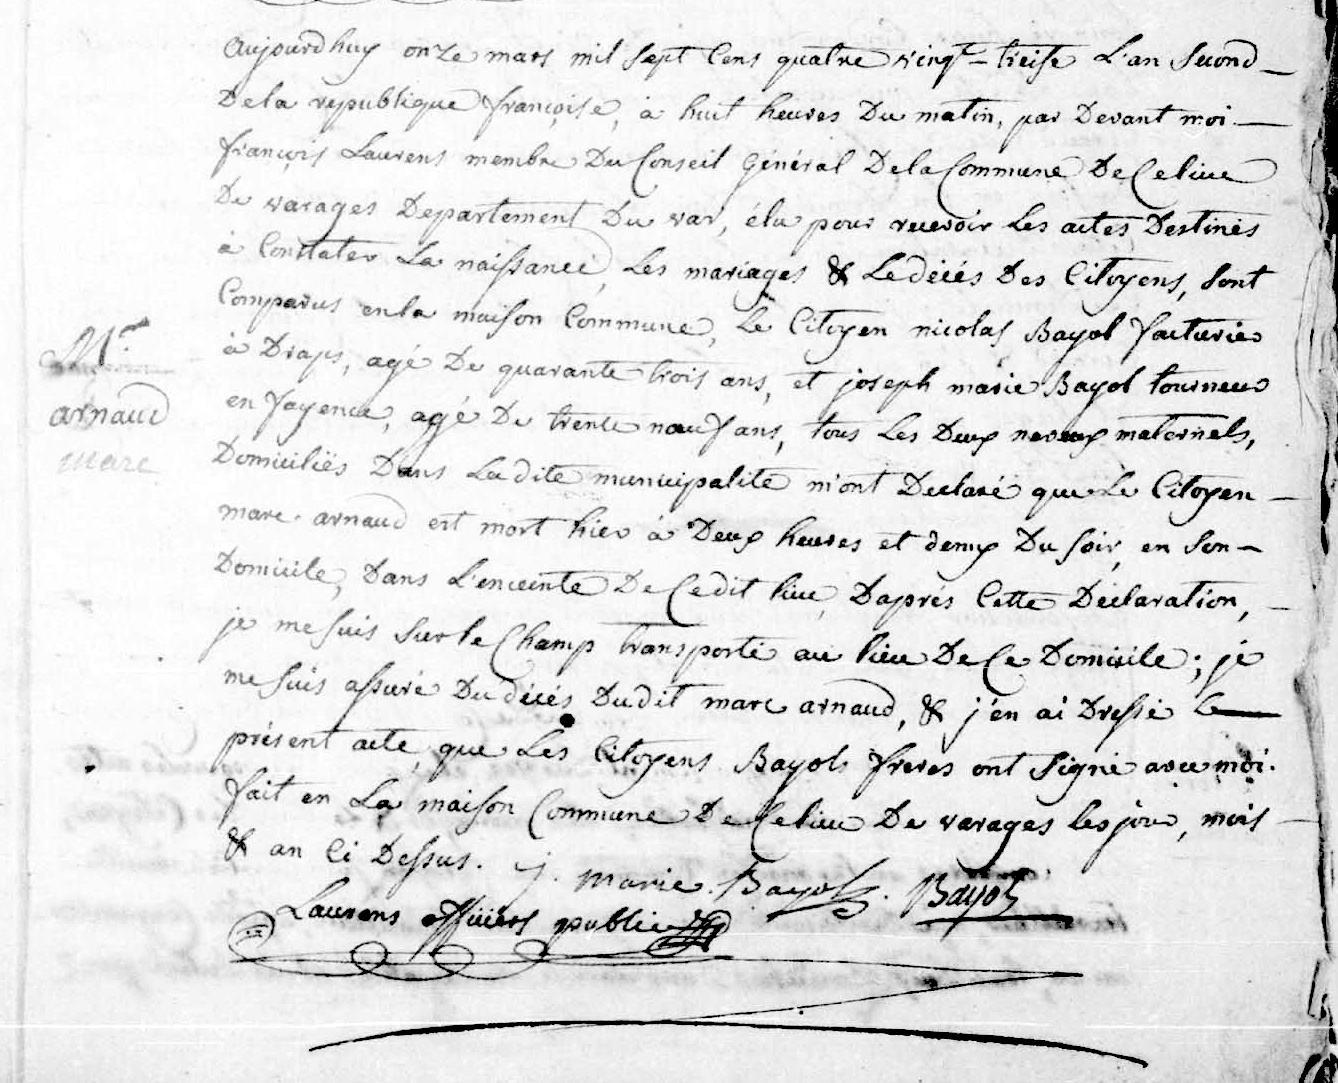 aujourdhuy onze mars mil sept cens quatre vingt-treise L'an second
De la republique françoise, à huit heures Du matin, par Devant moi
françois Laurens membre Du Conseil Général De la Commune De Ce lieu
De varages Departement Du var, élu pour recevoir Les actes Destinés
à Constater La naissance, Les mariages & Le décés Des Citoyens, sont
Comparus en la maison Commune, Le Citoyen nicolas Bayol facturier
à Draps, agé De quarante trois ans, et joseph marie Bayol tourneur
en fayence, agé De trente neuf ans, tous Les Deux neveux maternels,
Domiciliés Dans Ladite municipalité m'ont Declaré que Le Citoyen
marc arnaud est mort hier à Deux heures et demy Du soir, en son
Domicile, Dans L'enceinte De Cedit lieu, D'aprés Cette Déclaration,
je me suis sur le Champ transporté au lieu De Ce Domicile; je
me suis assuré Du décés Dudit marc arnaud, & j'en ai Dressé le
présent acte, que Les Citoyens Bayols freres ont signé avec moi.
fait en La maison Commune De Ce lieu De varages les jour, mois
& an Ci Dessus. j. marie. Bayol. Bayol
Laurens officier public
M.r
arnaud
marc